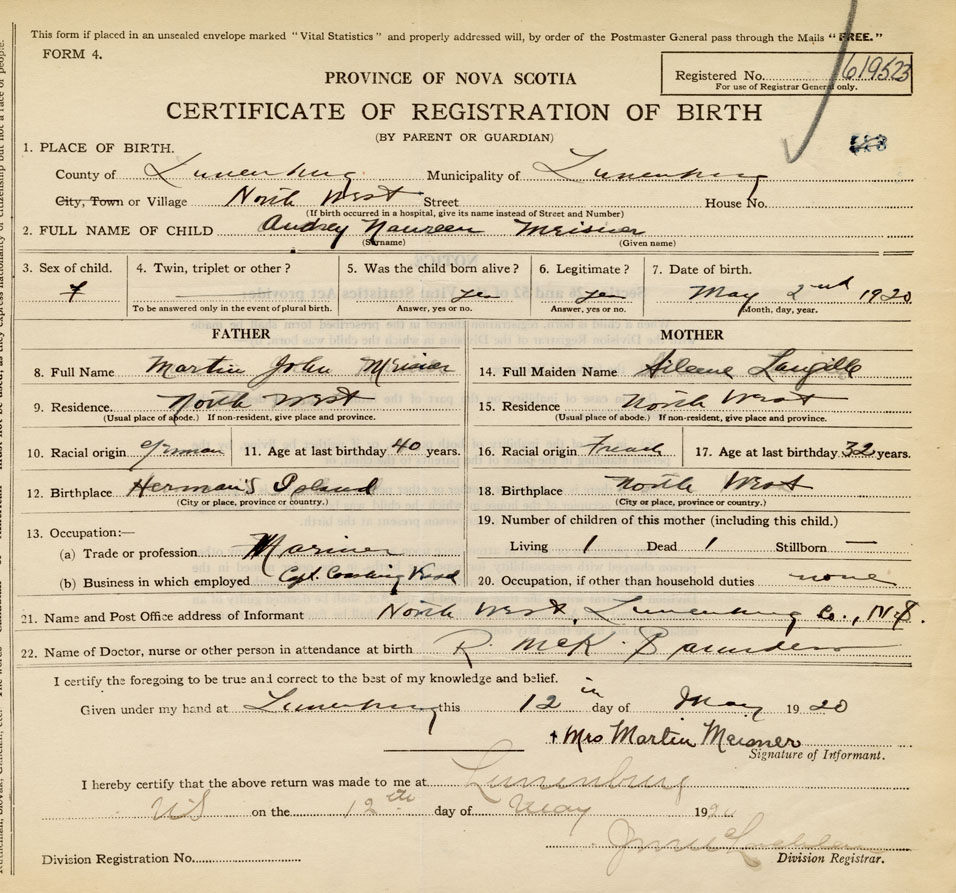 This form if placed in an unsealed envelope marked "Vital Statistics" and properly addressed will, by order of the Postmaster General pass through the Mails "FREE."
FORM 4.
Registered No. 619523
For use of Registrar General only.
PROVINCE OF NOVA SCOTIA
CERTIFICATE OF REGISTRATION OF BIRTH
(BY PARENT OR GUARDIAN)
1. PLACE OF BIRTH.
County of Lunenburg Municipality of Lunenburg
City, Town or Village North West Street House No.
(If birth occurred in a hospital, give its name instead of Street and Number)
2. FULL NAME OF CHILD Audrey Naureen Meisner
(Surname) (Given name)
3. Sex of child. 4. Twin, triplet or other? 5. Was the child born alive? 6. Legitimate? 7. Date of birth.
f yes yes May 2nd 1920
To be answered only in the event of plural birth. Answer, yes or no. Answer, yes or no. Month, day, year.
FATHER MOTHER
8. Full Name Martin John Meisner 14. Full Maiden Name Langille
9. Residence North West 15. Residence North West
(Usual place of abode.) If non-resident, give place and province. (Usual place of abode.) If non-resident, give place and province.
10. Racial origin German 11. Age at last birthday 40 years. 16. Racial origin French 17. Age at last birthday 32 years.
12. Birthplace Herman's Island 18. Birthplace North West
(City or place, province or country.) (City or place, province or country.)
13. Occupation:— 19. Number of children of this mother (including this child.)
(a) Trade or profession Mariner Living 1 Dead 1 Stillborn —
(b) Business in which employed Capt. Coasting Vessel 20. Occupation, if other than household duties none
21. Name and Post Office address of Informant North West, Lunenburg Co., N.S.
22. Name of Doctor, nurse or other person in attendance at birth R. McK. Saunders
I certify the foregoing to be true and correct to the best of my knowledge and belief.
Given under my hand at Lunenburg this 12 day of May 1920
+ Mrs Martin Meisner
Signature of Informant.
I hereby certify that the above return was made to me at Lunenburg
NS on the 12th day of May 1920
Division Registration No. Division Registrar.